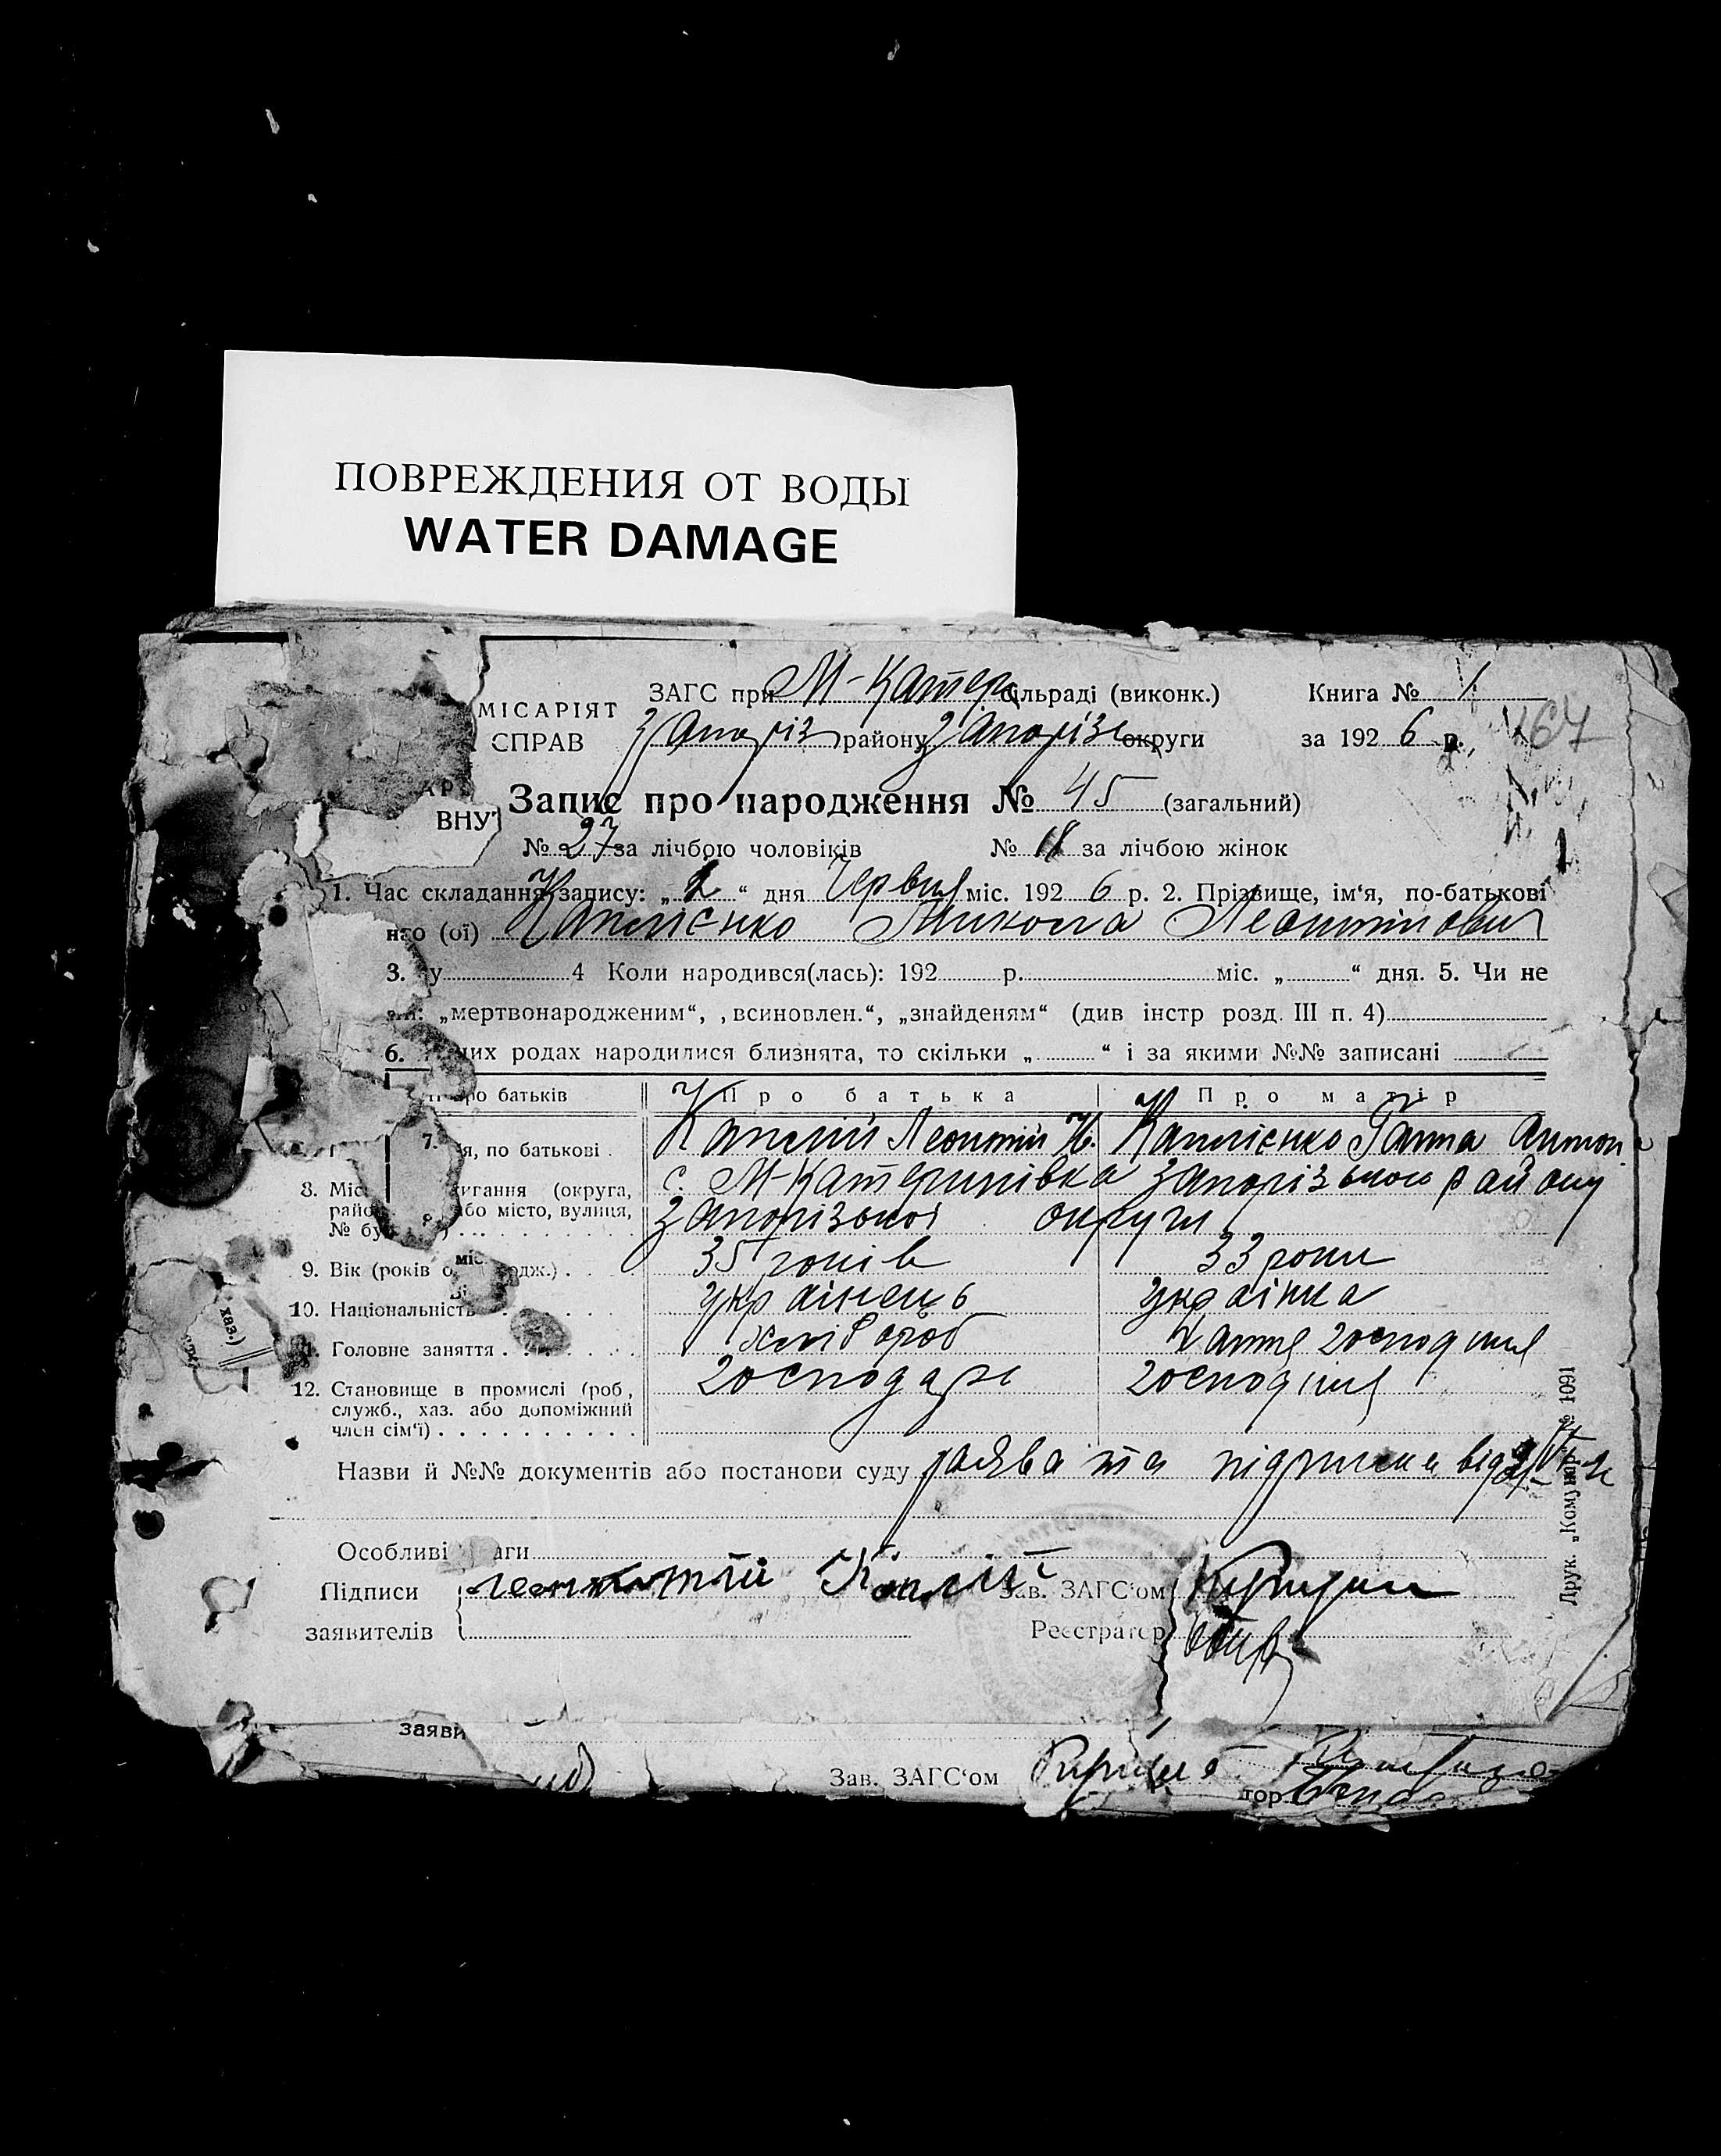 ПОВРЕЖДЕНИЯ ОТ ВОДЫ
WATER DAMAGE
МІСАРІЯТ ЗАГС при М-Катер сільраді (виконк.) Книга № 1
СПРАВ Запоріз району Запорізь округи за 192 6 р. 67
Запис про народження № 45 (загальний)
ВНУ
№ 27 за лічбою чоловіків № 18 за лічбою жінок
1. Час складання запису: „2“ дня Червня міс. 192 6 р. 2. Прізвище, ім‘я, по-батькові
(ої) Каплієнко Микола Леонтійович
3. у 4 Коли народився(лась): 192 р. міс. „ “ дня. 5. Чи не
„мертвонародженим“, „всиновлен.“, „знайденям“ (див інстр розд. III п. 4)
6. родах народилися близнята, то скільки „ “ і за якими №№ записані
про батьків Про батька Про матір
7. я, по батькові . Каплій Леонтій Каплієнко Ганна Антон
8. Міс игання (округа, с. М-Катеринівка Запорізького району
райо або місто, вулиця,
№ бу ) Запорізької округи
9. Вік (років о дж.) . 35 років 33 роки
міс
10. Національність українець українка
хаз.)
Головне заняття . . . . хлібороб Хатня господиня
12. Становище в промислі (роб., господарь господиня
служб., хаз. або допоміжний
член сім‘ї) . . . . . . . . . .
Назви й №№ документів або постанови суду заява та підписка від
Особливі аги
Підписи Каплій Зав. ЗАГС‘ом
заявителів Реєстратор
Друк. „Комунар“ № 1091
заяви
Зав. ЗАГС‘ом
тор